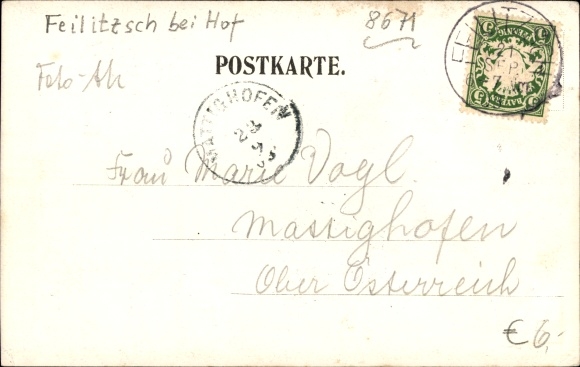 Feilitzsch bei Hof 8671
Foto-Ak
POSTKARTE.
MATTIGHOFEN
BAYERN
Frau Marie Vogl.
Mattighofen
Ober Österreich
€ 6,-